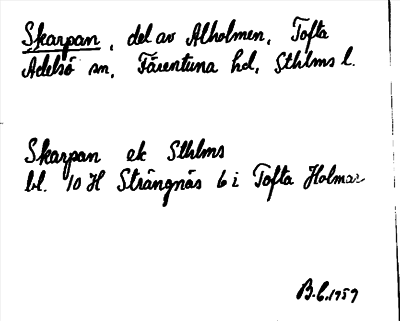 Skarpan, del av Alholmen, Tofta
Adelsö sn, Färentuna hd, Sthlms l.
Skarpan ek Sthlms
bl. 10 H Strängnäs 6 i Tofta Holmar
B.C. 1959